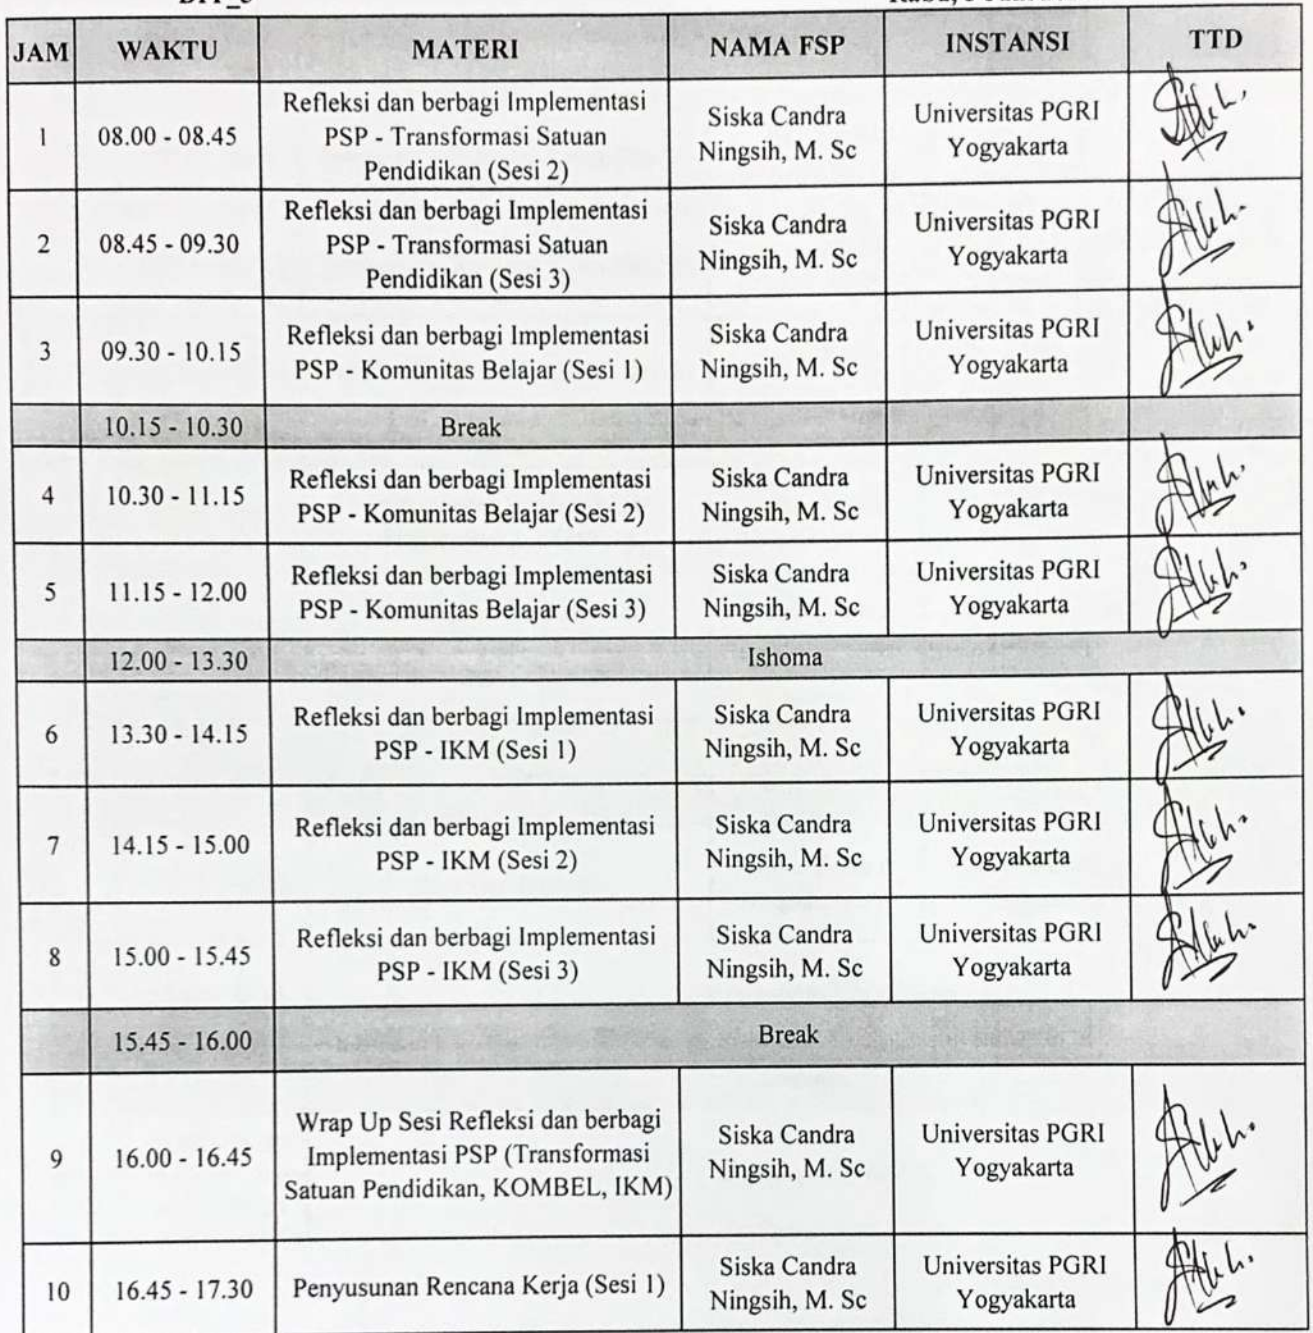 JAM WAKTU MATERI NAMA FSP INSTANSI TTD
1 08.00 - 08.45 Refleksi dan berbagi Implementasi PSP - Transformasi Satuan Pendidikan (Sesi 2) Siska Candra Ningsih, M. Sc Universitas PGRI Yogyakarta
2 08.45 - 09.30 Refleksi dan berbagi Implementasi PSP - Transformasi Satuan Pendidikan (Sesi 3) Siska Candra Ningsih, M. Sc Universitas PGRI Yogyakarta
3 09.30 - 10.15 Refleksi dan berbagi Implementasi PSP - Komunitas Belajar (Sesi 1) Siska Candra Ningsih, M. Sc Universitas PGRI Yogyakarta
10.15 - 10.30 Break
4 10.30 - 11.15 Refleksi dan berbagi Implementasi PSP - Komunitas Belajar (Sesi 2) Siska Candra Ningsih, M. Sc Universitas PGRI Yogyakarta
5 11.15 - 12.00 Refleksi dan berbagi Implementasi PSP - Komunitas Belajar (Sesi 3) Siska Candra Ningsih, M. Sc Universitas PGRI Yogyakarta
12.00 - 13.30 Ishoma
6 13.30 - 14.15 Refleksi dan berbagi Implementasi PSP - IKM (Sesi 1) Siska Candra Ningsih, M. Sc Universitas PGRI Yogyakarta
7 14.15 - 15.00 Refleksi dan berbagi Implementasi PSP - IKM (Sesi 2) Siska Candra Ningsih, M. Sc Universitas PGRI Yogyakarta
8 15.00 - 15.45 Refleksi dan berbagi Implementasi PSP - IKM (Sesi 3) Siska Candra Ningsih, M. Sc Universitas PGRI Yogyakarta
15.45 - 16.00 Break
9 16.00 - 16.45 Wrap Up Sesi Refleksi dan berbagi Implementasi PSP (Transformasi Satuan Pendidikan, KOMBEL, IKM) Siska Candra Ningsih, M. Sc Universitas PGRI Yogyakarta
10 16.45 - 17.30 Penyusunan Rencana Kerja (Sesi 1) Siska Candra Ningsih, M. Sc Universitas PGRI Yogyakarta